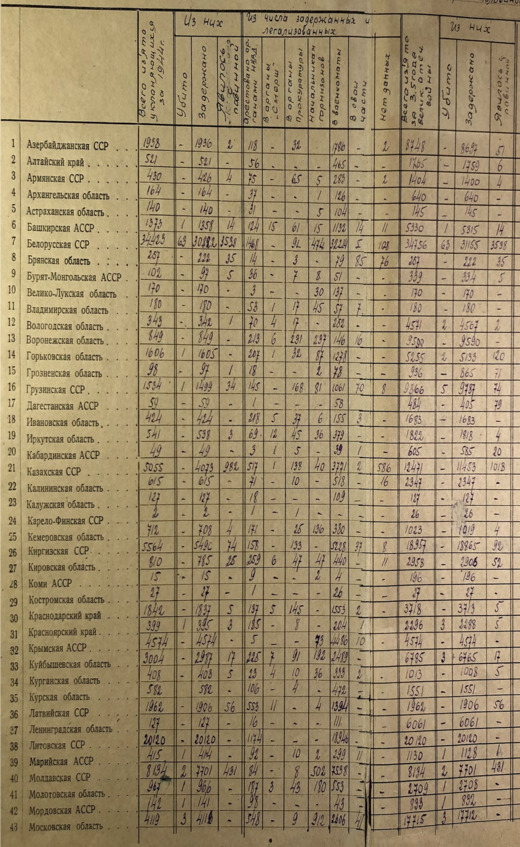 Всего изъято уклоняющихся за 1944г.
Из них
Убито
Задержано
Явилось с повинной
Из числа задержанных и легализованных
Арестовано органами НКВД
В органы "Смерш"
В органы Прокуратуры
В военкоматы
В свои части
Нет данных
Всего изъято за 3,5 года войны
Из них
Убито
Задержано
Явилось с повинной
1 Азербайджанская ССР 1938 - 1936 2 118 - 32 - 1786 - 2 8748 - 8697 51
2 Алтайский край 521 - 521 - 56 - - - 465 - - 1765 - 1759 6
3 Армянская ССР 430 - 426 4 75 - 65 5 283 - 2 1404 - 1400 4
4 Архангельская область 164 - 164 - 37 - - 1 126 - - 640 - 640 -
5 Астраханская область 140 - 140 - 31 - - 5 104 - - 145 - 145 -
6 Башкирская АССР 1373 1 1358 14 124 15 61 15 1132 14 11 5330 1 5315 14
7 Белорусская ССР 34923 63 3538 92 474 5 108 34756 63 31155 3538
8 Брянская область 257 - 222 35 14 - 3 - 79 85 76 257 - 222 35
9 Бурят-Монгольская АССР 102 - 97 5 36 - 7 8 51 - - 339 - 334 5
10 Велико-Лукская область 170 - 170 - 3 - - 30 137 - - 170 - 170 -
11 Владимирская область 180 - 180 - 53 1 17 45 57 7 -
12 Вологодская область 343 - 342 1 70 4 17 - 252 - - 4571 2 4567 2
13 Воронежская область 849 - 849 - 213 6 231 237 146 16 - 9590 - 9590 -
14 Горьковская область 1606 1 1605 - 207 1 32 87 1278 - - 5255 2 5133 120
15 Грозненская область 98 - 97 1 18 - - 2 78 - - 936 - 865 71
16 Грузинская ССР 1534 1 1499 34 145 - 168 81 1061 70 8 9866 5 9787 74
17 Дагестанская АССР 59 - 59 - 1 - - - 58 - - 484 - 405 79
18 Ивановская область 424 - 424 - 218 5 37 6 155 3 - 1683 - 1683 -
19 Иркутская область 541 - 538 3 69 12 45 36 379 - - 1822 - 1818 4
20 Кабардинская АССР 49 - 49 - 3 1 5 - 39 1 - 605 - 585 20
21 Казахская ССР 5055 - 4073 982 517 1 138 40 3771 2 586 12471 - 11453 1018
22 Калининская область 615 - 615 - 71 - 10 - 518 - 16 2347 - 2347 -
23 Калужская область 127 - 127 - 18 - - - 109 - - 127 - 127 -
24 Карело-Финская ССР 2 - 2 - 1 - 1 - - - - 26 - 26 -
25 Кемеровская область 712 - 708 4 171 - 25 136 380 - - 1023 - 1019 4
26 Киргизская ССР 5564 - 5490 74 158 - 133 - 5228 37 8 18957 - 18865 92
27 Кировская область 810 - 785 25 259 6 47 47 440 - 11 2958 - 2906 52
28 Коми АССР 15 - 15 - 9 - - 2 4 - - 196 - 196 -
29 Костромская область 27 - 27 - 1 - - - 26 - - 27 - 27 -
30 Краснодарский край 1842 - 1837 5 137 5 145 - 1553 2 - 3718 - 3713 5
31 Красноярский край 399 1 395 3 185 - 8 - 204 1 - 2296 3 2288 5
32 Крымская АССР 4574 - 4574 - 5 - - 73 4486 10 - 4574 - 4574 -
33 Куйбышевская область 3004 - 2987 17 225 7 91 192 2489 - - 6785 3 6765 17
34 Курганская область 408 - 403 5 23 4 10 36 333 2 - 1013 - 1008 5
35 Курская область 582 - 582 - 106 - 4 - 472 - - 1551 - 1551 -
36 Латвийская ССР 1962 - 1906 56 553 11 - 4 1394 - - 1962 - 1906 56
37 Ленинградская область 127 - 127 - 16 - - - 111 - - 6061 - 6061 -
38 Литовская ССР 20120 - 20120 - 1174 - - - - - 20120 - 20120 -
39 Марийская АССР 415 1 414 - 92 - 10 2 299 11 - 1130 1 1128 1
40 Молдавская ССР 8134 2 7701 431 84 - 8 502 7538 - - 8134 2 7701 431
41 Молотовская область 967 1 966 - 187 3 43 180 553 - - 2709 1 2708 -
42 Мордовская АССР 142 1 141 - 98 - - - 43 - - 833 1 832 -
43 Московская область 4119 3 4116 - 548 - 9 912 2606 41 - 17715 3 17712 -